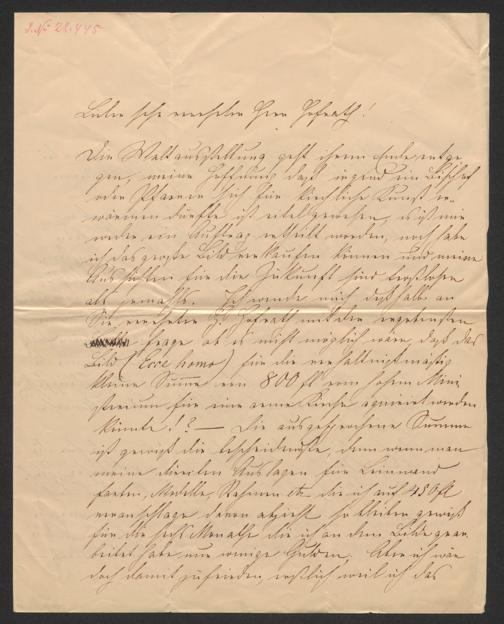 J. No 22.445
Lieber sehr verehrter Herr Hofrath!
Die Weltausstellung geht ihrem Ende entge-
gen, meine Hoffnung daß irgend ein Bischof
oder Pfarrer sich für kirchliche Kunst er-
wärmen dürfte ist eitel gewesen, es ist mir
weder ein Auftrag ertheilt worden, noch habe
ich das große Bild verkaufen können und meine
Aussichten für die Zukunft sind trostloser
als jemals. Ich wende mich deßhalb an
Sie verehrter H. Hofrath mit der ergebensten
Frage ob es nicht möglich wäre, daß das
Bild (Ecce homo) für die verhältnißmäßig
kleine Summe von 800 fl vom hohen Mini
sterium für eine arme Kirche acquirirt werden
könnte!? — Die ausgesprochene Summe
ist gewiß die bescheidenste, denn wenn man
meine directen Auslagen für Leinwand
Farben, Modelle, Rahmen etc. die ich auf 450 fl
veranschlage davon abzieht so bleiben gewiß
für die sechs Monate die ich an dem Bilde gear
beitet habe nur wenige Gulden. Aber ich wäre
doch damit zufrieden, erstlich weil ich das